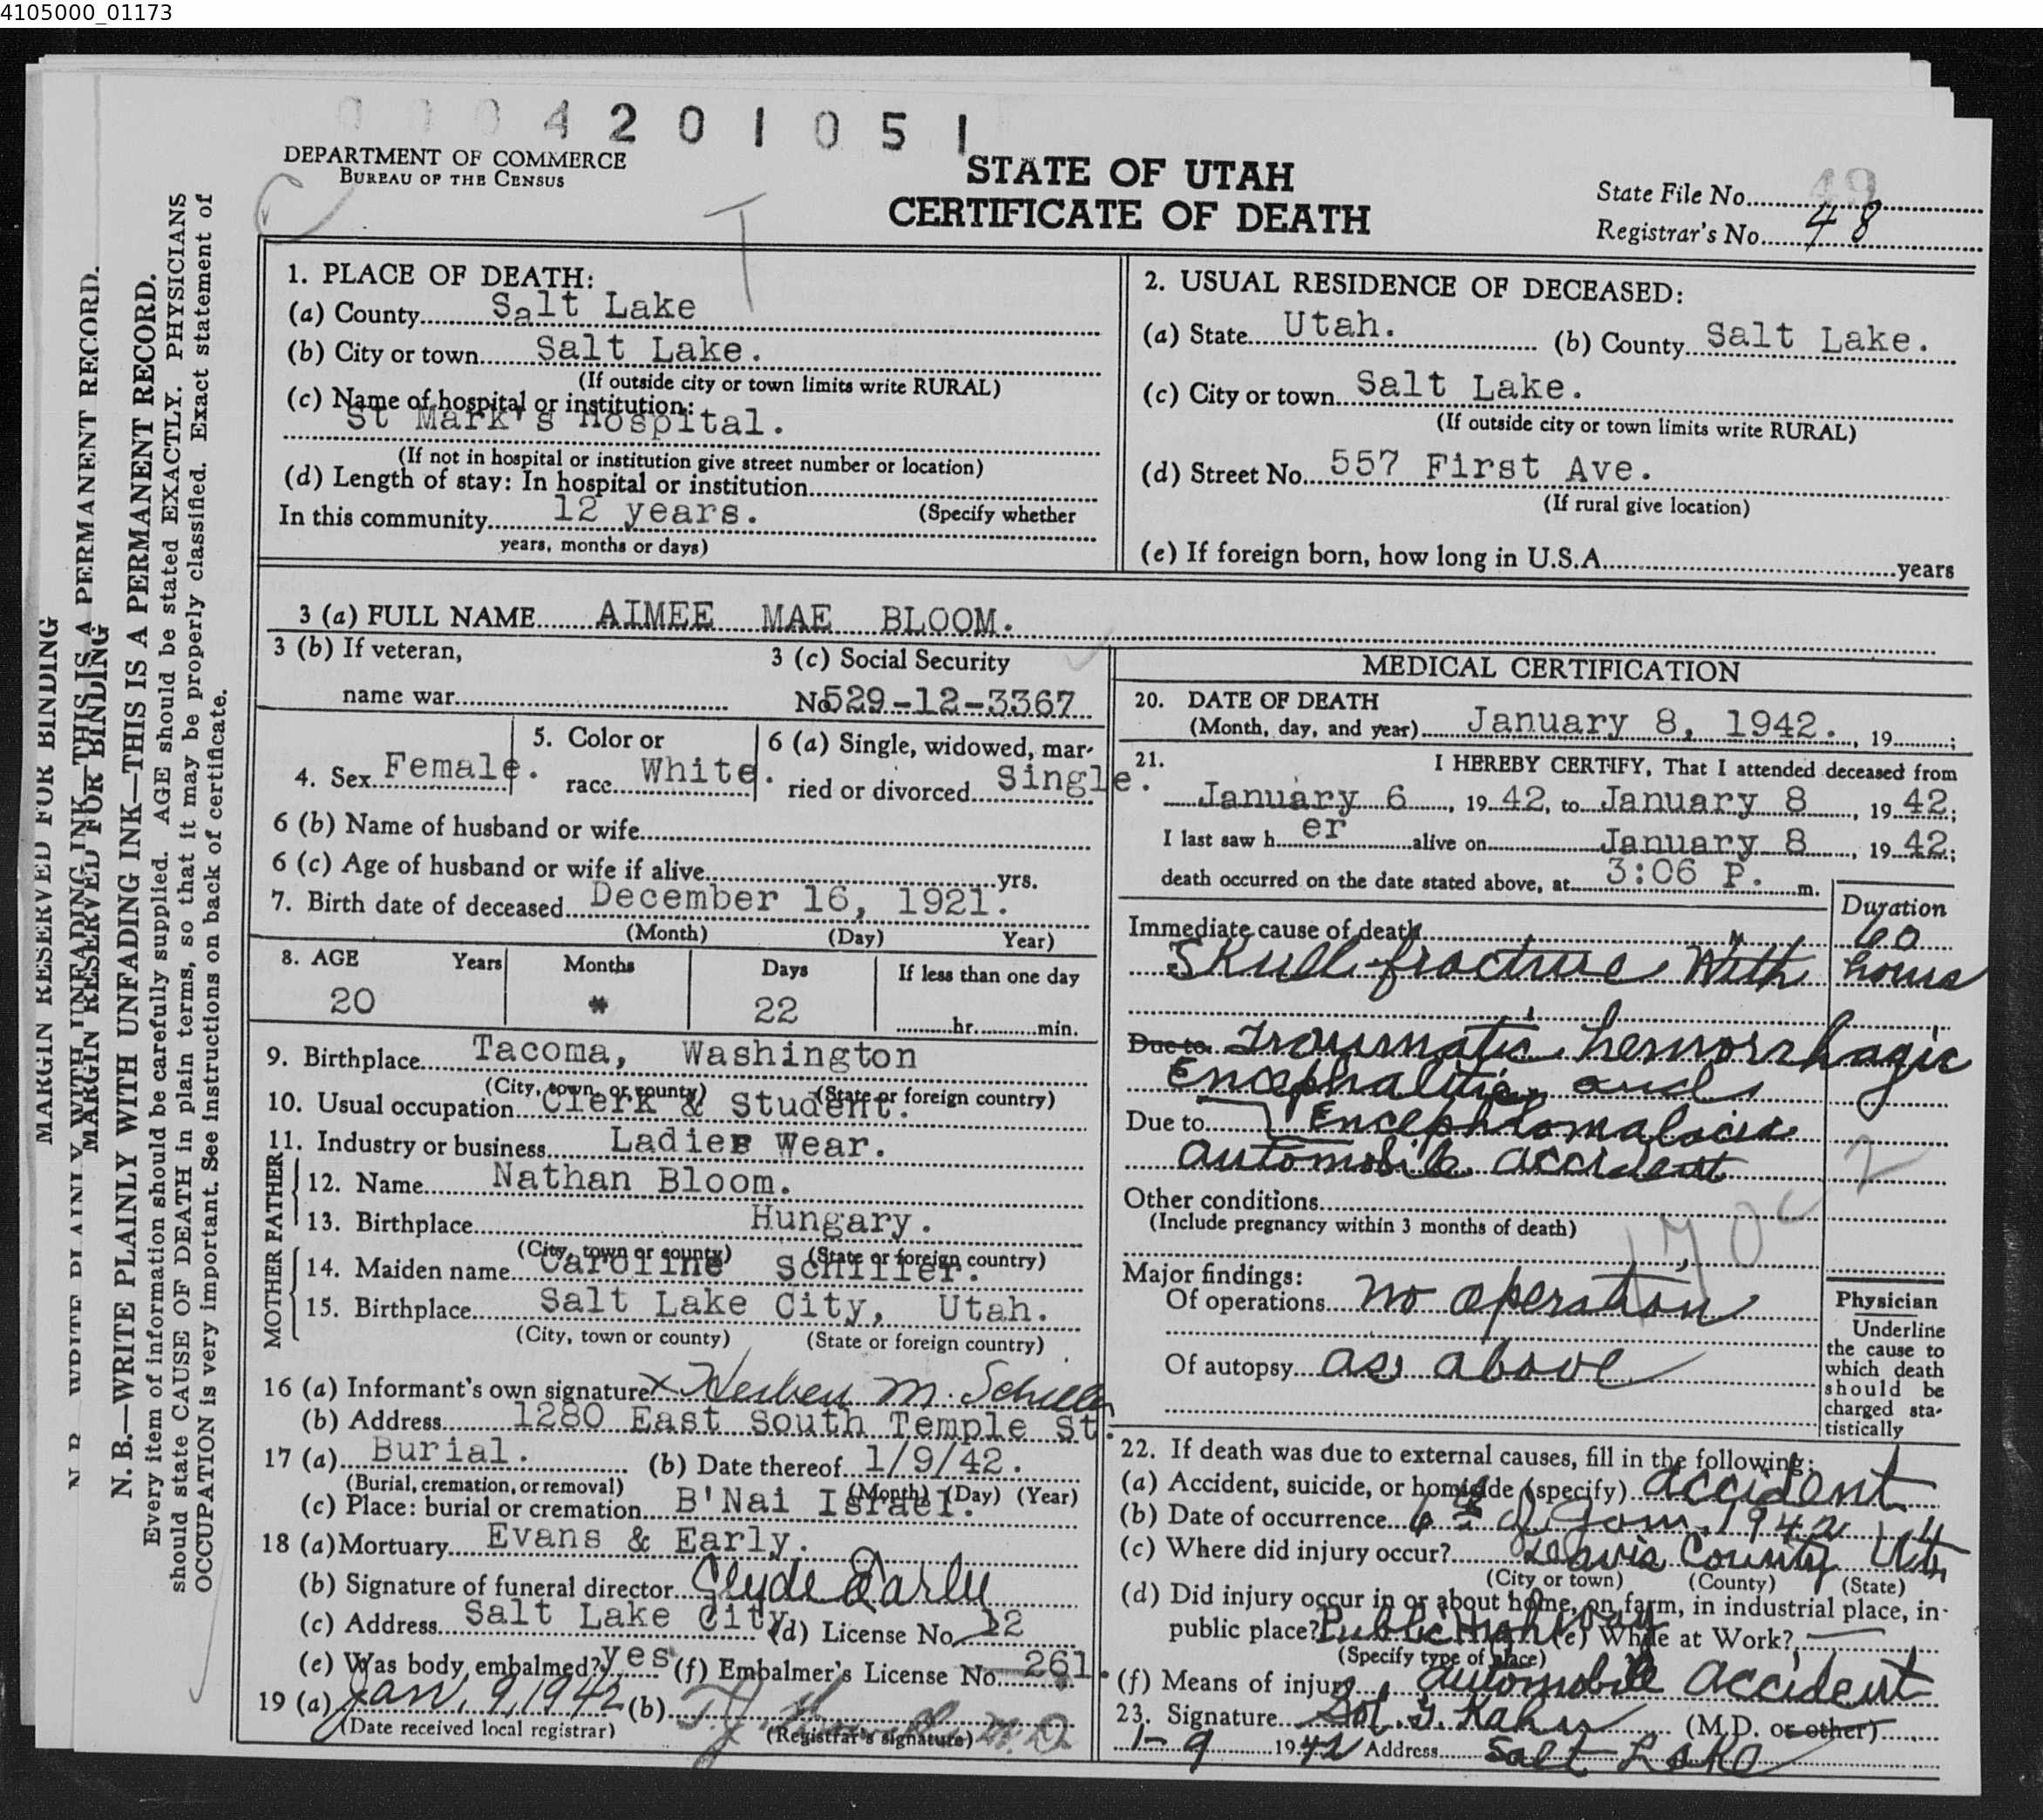 4105000_01173
0004201051
DEPARTMENT OF COMMERCE
BUREAU OF THE CENSUS
STATE OF UTAH
CERTIFICATE OF DEATH
State File No. 49
Registrar's No. 48
T
MARGIN RESERVED FOR BINDING
N. B.—WRITE PLAINLY WITH UNFADING INK—THIS IS A PERMANENT RECORD.
MARGIN RESERVED FOR BINDING
N. B.—WRITE PLAINLY WITH UNFADING INK—THIS IS A PERMANENT RECORD.
Every item of information should be carefully supplied. AGE should be stated EXACTLY. PHYSICIANS
should state CAUSE OF DEATH in plain terms, so that it may be properly classified. Exact statement of
OCCUPATION is very important. See instructions on back of certificate.
1. PLACE OF DEATH:
(a) County Salt Lake
(b) City or town Salt Lake.
(If outside city or town limits write RURAL)
(c) Name of hospital or institution:
St Mark's Hospital.
(If not in hospital or institution give street number or location)
(d) Length of stay: In hospital or institution
In this community 12 years. (Specify whether
years, months or days)
2. USUAL RESIDENCE OF DECEASED:
(a) State Utah. (b) County Salt Lake.
(c) City or town Salt Lake.
(If outside city or town limits write RURAL)
(d) Street No. 557 First Ave.
(If rural give location)
(e) If foreign born, how long in U.S.A. years
3 (a) FULL NAME AIMEE MAE BLOOM.
3 (b) If veteran, 3 (c) Social Security
name war No 529-12-3367
4. Sex Female. 5. Color or race White. 6 (a) Single, widowed, mar-
ried or divorced Single.
6 (b) Name of husband or wife
6 (c) Age of husband or wife if alive yrs.
7. Birth date of deceased December 16, 1921.
(Month) (Day) Year)
8. AGE Years Months Days If less than one day
20 * 22 hr. min.
9. Birthplace Tacoma, Washington
(City, town, or county) (State or foreign country)
10. Usual occupation Clerk & Student.
11. Industry or business Ladies Wear.
FATHER
12. Name Nathan Bloom.
13. Birthplace Hungary.
(City, town or county) (State or foreign country)
MOTHER
14. Maiden name Caroline Schiller.
15. Birthplace Salt Lake City, Utah.
(City, town or county) (State or foreign country)
16 (a) Informant's own signature x Herbert M. Schiller
(b) Address 1280 East South Temple St.
17 (a) Burial. (b) Date thereof 1/9/42.
(Burial, cremation, or removal) (Month) (Day) (Year)
(c) Place: burial or cremation B'Nai Israel.
18 (a) Mortuary Evans & Early.
(b) Signature of funeral director Clyde Early
(c) Address Salt Lake City (d) License No. 12
(e) Was body embalmed? yes (f) Embalmer's License No. 261.
19 (a) Jan. 9, 1942 (b) T.J. M.D.
(Date received local registrar) (Registrar's signature)
MEDICAL CERTIFICATION
20. DATE OF DEATH
(Month, day, and year) January 8, 1942. , 19 ;
21. I HEREBY CERTIFY, That I attended deceased from
January 6 , 19 42, to January 8 , 19 42;
I last saw h er alive on January 8 , 19 42;
death occurred on the date stated above, at 3:06 P. m.
Duration
Immediate cause of death 60
Skull fracture With hours
Due to Traumatic hemorrhagic
Encephalitis and
Due to Encephlomalacia
automobile accident
Other conditions
(Include pregnancy within 3 months of death)
170c 2
Major findings:
Of operations no operation
Of autopsy as above
Physician
Underline
the cause to
which death
should be
charged sta-
tistically
22. If death was due to external causes, fill in the following:
(a) Accident, suicide, or homicide (specify) accident
(b) Date of occurrence 6th of Jan. 1942
(c) Where did injury occur? Davis County Utah
(City or town) (County) (State)
(d) Did injury occur in or about home, on farm, in industrial place, in
public place? Public Highway (e) While at Work?
(Specify type of place)
(f) Means of injury automobile accident
23. Signature Sol. G. Kahn (M.D. or other)
1-9 1942 Address Salt Lake